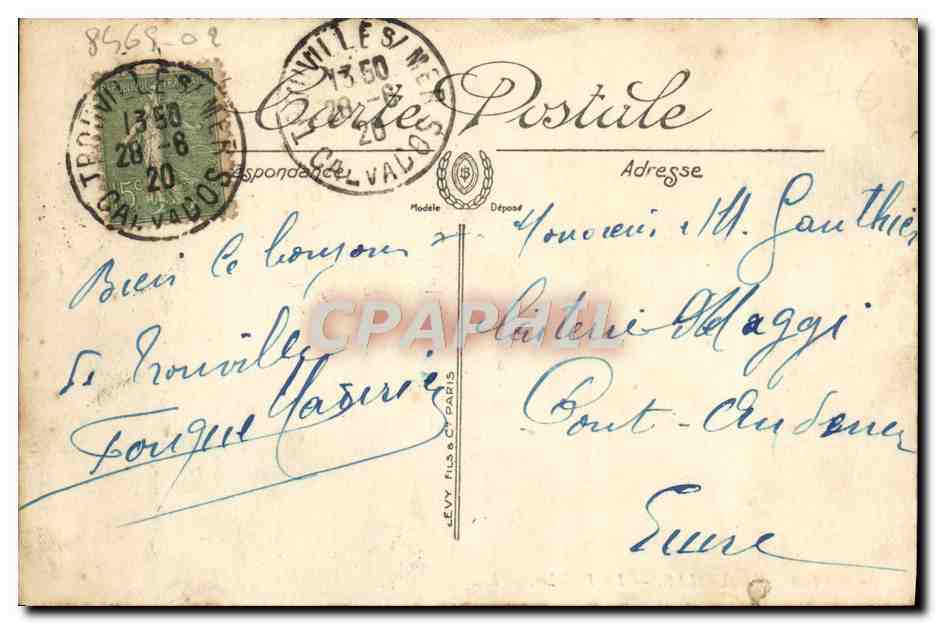 8468-02
TROUVILLE S/ MER
13 50
28 -6
20
CALVADOS
TROUVILLE S/ MER
13 50
28 -6
20
CALVADOS
15c
Carte Postale
Correspondance
Adresse
Modèle Déposé
Bien le bonjour
de Trouville
Fouque Maurice
Monsieur M. Gauthier
Laiterie Maggi
Pont-Audemer
Eure
LEVY FILS & Cie PARIS
CPAPHIL